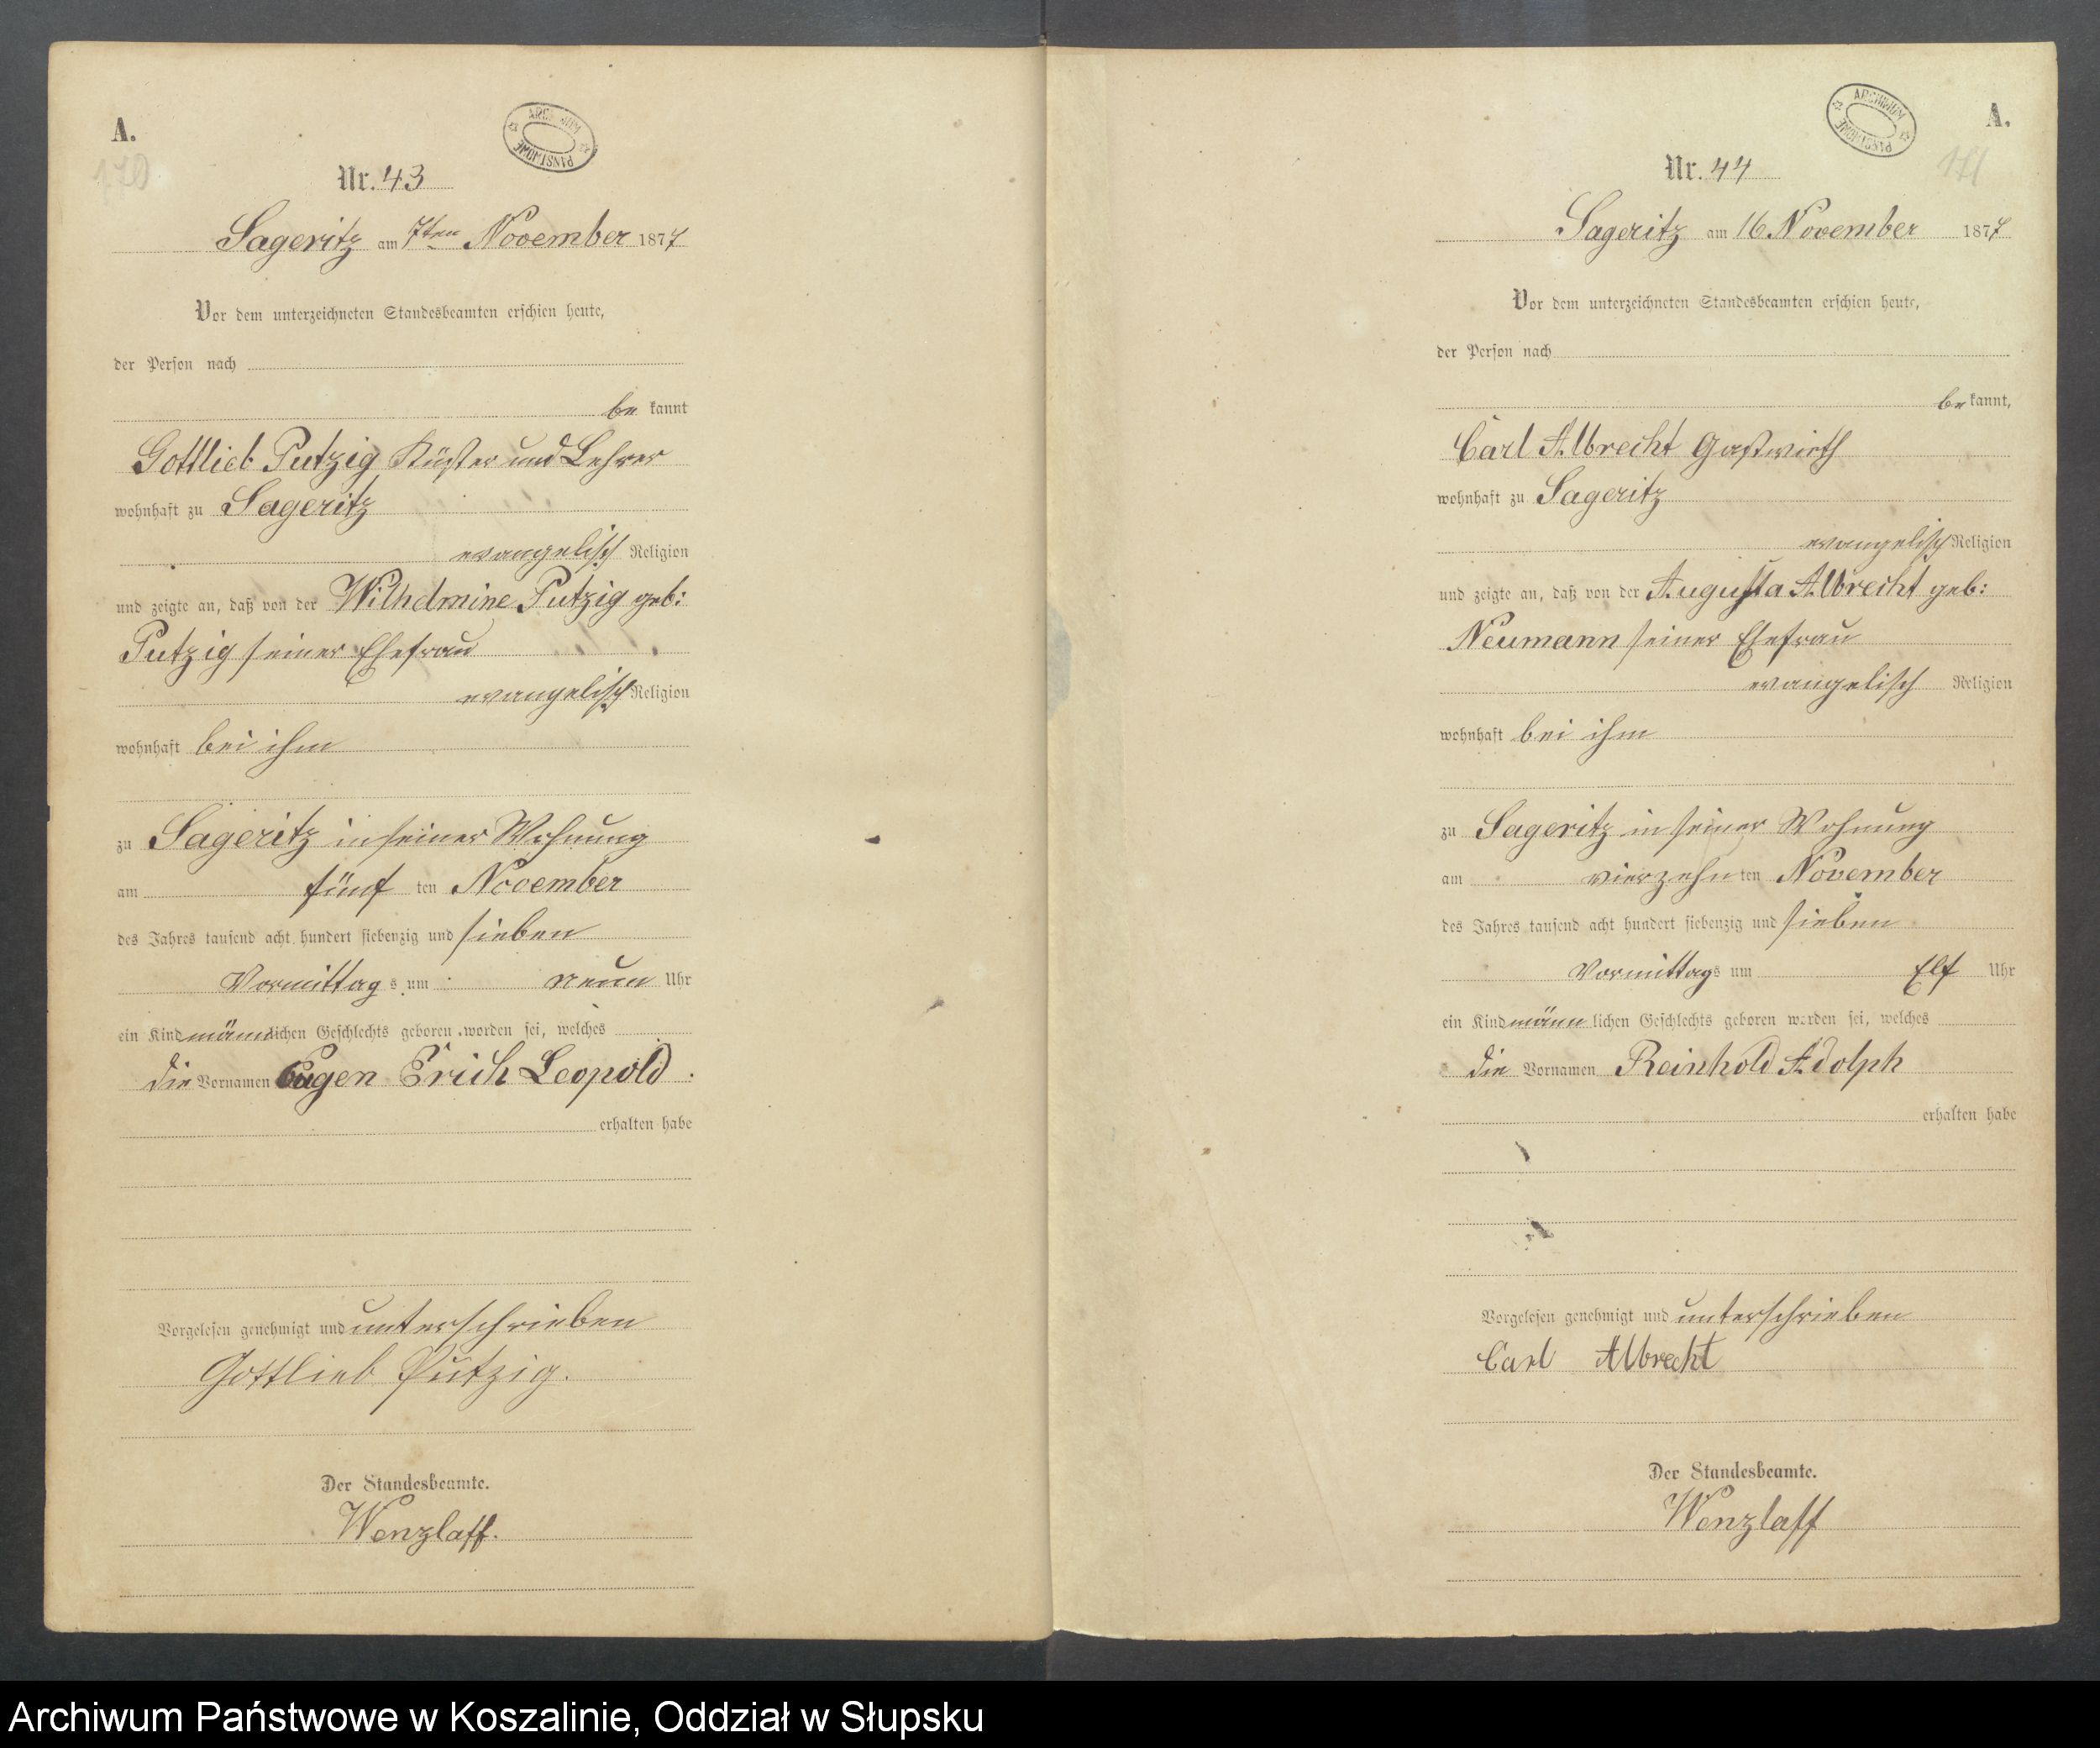 A.
170
ARCHIWUM PAŃSTWOWE
Nr. 43
Sageritz am 7ten November 1877
Vor dem unterzeichneten Standesbeamten erschien heute,
der Person nach
be kannt
Gottlieb Putzig Küster und Lehrer
wohnhaft zu Sageritz
evangelisch Religion
und zeigte an, daß von der Wilhelmine Putzig geb:
Putzig seiner Ehefrau
evangelisch Religion
wohnhaft bei ihm
zu Sageritz in seiner Wohnung
am fünf ten November
des Jahres tausend acht hundert siebenzig und sieben
Vormittag s um neun Uhr
ein Kind männlichen Geschlechts geboren worden sei, welches
die Vornamen Eugen Erich Leopold
erhalten habe
Vorgelesen genehmigt und unterschrieben
Gottlieb Putzig.
Der Standesbeamte.
Wenzlaff.
A.
171
ARCHIWUM PAŃSTWOWE
Nr. 44
Sageritz am 16 November 1877
Vor dem unterzeichneten Standesbeamten erschien heute,
der Person nach
be kannt,
Carl Albrecht Gastwirth
wohnhaft zu Sageritz
evangelisch Religion
und zeigte an, daß von der Augusta Albrecht geb:
Neumann seiner Ehefrau
evangelisch Religion
wohnhaft bei ihm
zu Sageritz in seiner Wohnung
am vierzehn ten November
des Jahres tausend acht hundert siebenzig und sieben
Vormittag s um Elf Uhr
ein Kind männ lichen Geschlechts geboren worden sei, welches
die Vornamen Reinhold Adolph
erhalten habe
Vorgelesen genehmigt und unterschrieben
Carl Albrecht
Der Standesbeamte.
Wenzlaff
Archiwum Państwowe w Koszalinie, Oddział w Słupsku